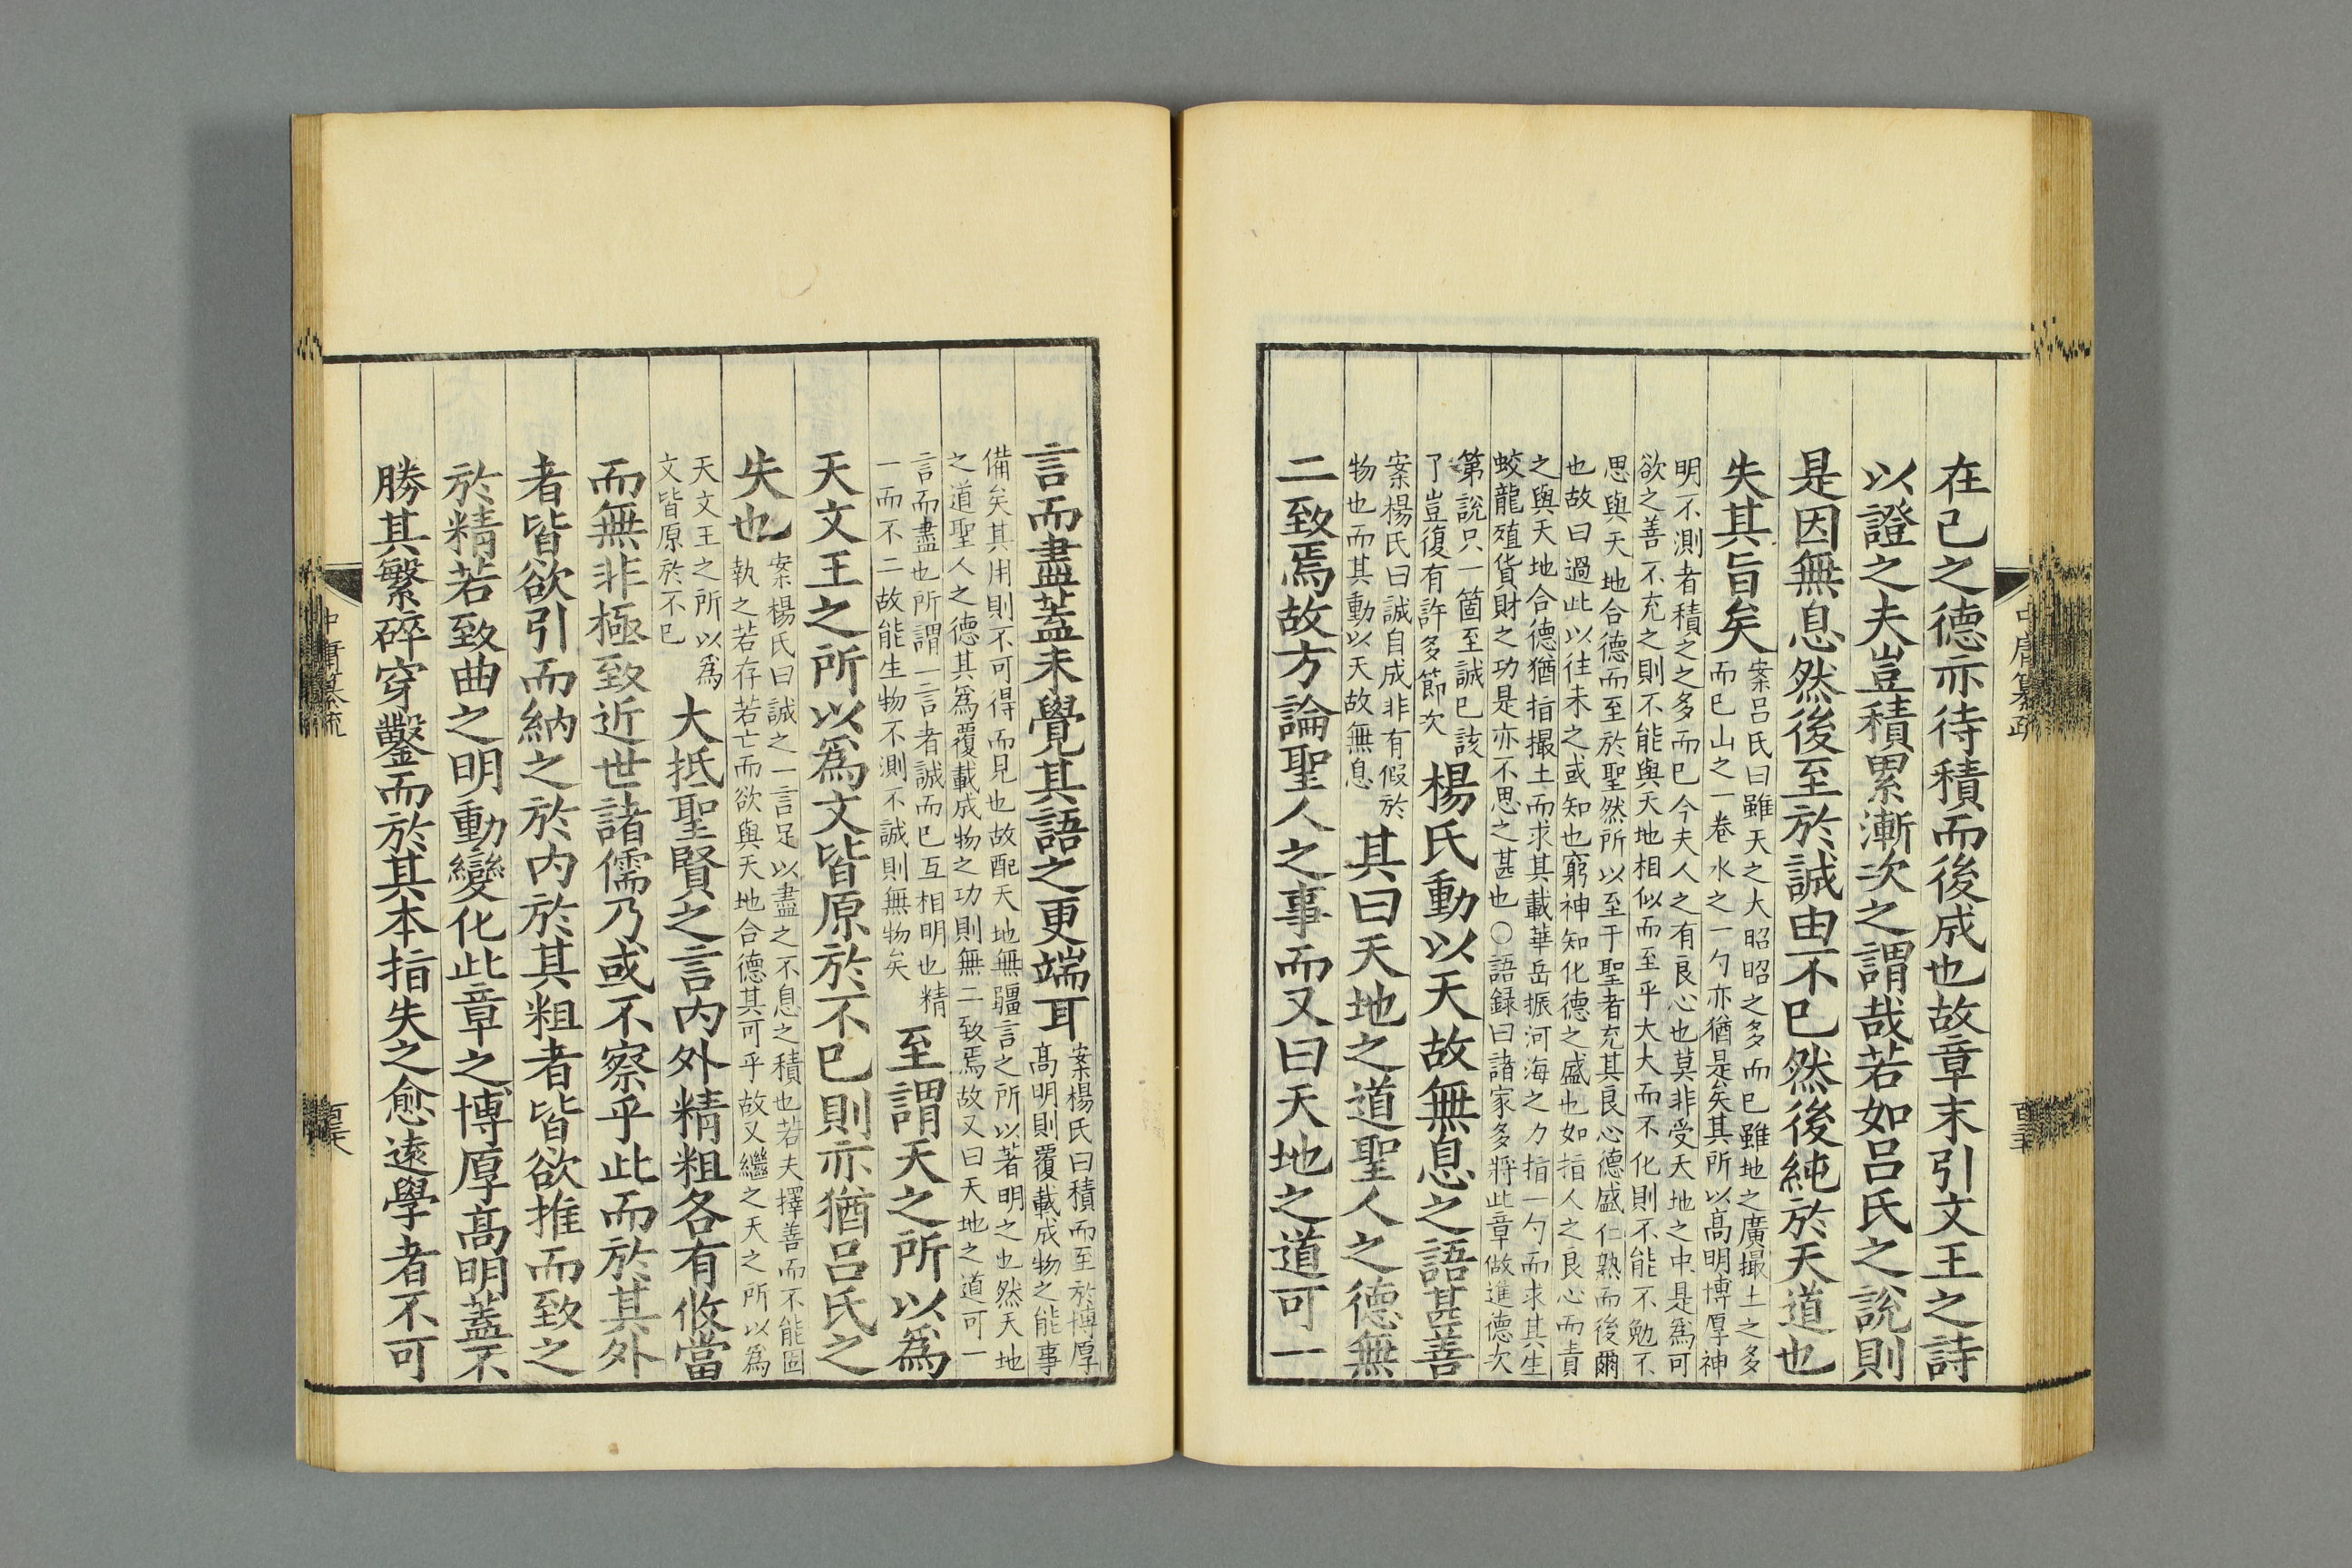 在己之德亦待積而後成也故章末引文王之詩
以證之夫豈積累漸次之謂哉若如呂氏之說則
是因無息然後至於誠由不已然後純於天道也
失其旨矣
案呂氏曰雖天之大昭昭之多而已雖地之廣撮土之多
而已山之一卷水之一勺亦猶是矣其所以高明博厚神
明不測者積之之多而已今夫人之有良心也莫非受天地之中是爲可
欲之善不充之則不能與天地相似而至乎大大而不化則不能不勉不
思與天地合德而至於聖然所以至于聖者充其良心德盛仁熟而後爾
也故曰過此以往未之或知也窮神知化德之盛也如指人之良心而責
之與天地合德猶指撮土而求其載華岳振河海之力指一勺而求其生
蛟龍殖貨財之功是亦不思之甚也○語録曰諸家多將此章做進德次
第說只一箇至誠已該
了豈復有許多節次
楊氏動以天故無息之語甚善
案楊氏曰誠自成非有假於
物也而其動以天故無息
其曰天地之道聖人之德無
二致焉故方論聖人之事而又曰天地之道可一
中庸纂疏
言而盡蓋未覺其語之更端耳
案楊氏曰積而至於博厚
高明則覆載成物之能事
備矣其用則不可得而見也故配天地無疆言之所以著明之也然天地
之道聖人之德其爲覆載成物之功則無二致焉故又曰天地之道可一
言而盡也所謂一言者誠而已互相明也精
一而不二故能生物不測不誠則無物矣
至謂天之所以爲
天文王之所以爲文皆原於不已則亦猶呂氏之
失也
案楊氏曰誠之一言足以盡之不息之積也若夫擇善而不能固
執之若存若亡而欲與天地合德其可乎故又繼之天之所以爲
天文王之所以爲
文皆原於不已
大抵聖賢之言内外精粗各有攸當
而無非極致近世諸儒乃或不察乎此而於其外
者皆欲引而納之於内於其粗者皆欲推而致之
於精若致曲之明動變化此章之博厚高明蓋不
勝其繁碎穿鑿而於其本指失之愈遠學者不可
中庸纂疏